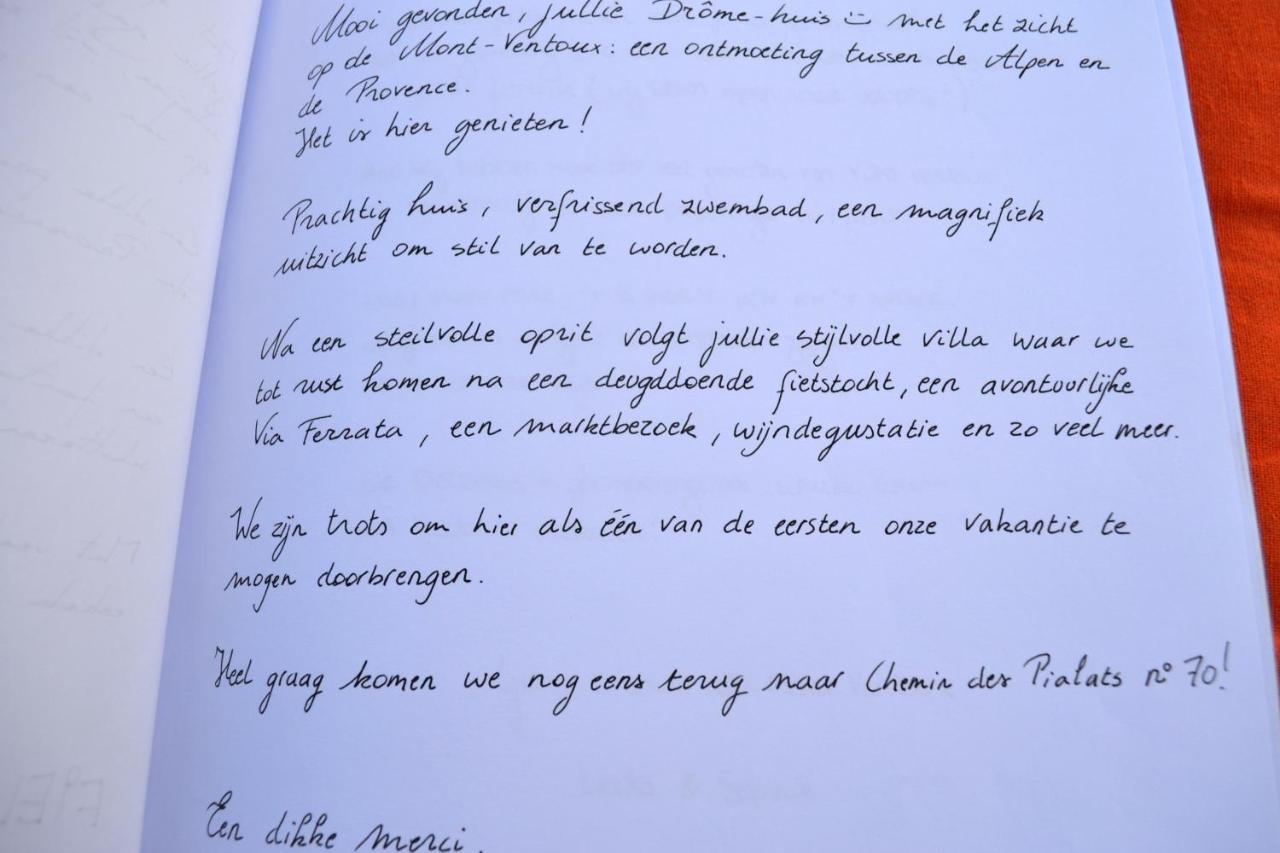 Mooi gevonden, jullie Drôme-huis :) met het zicht
op de Mont-Ventoux: een ontmoeting tussen de Alpen en
de Provence.
Het is hier genieten!
Prachtig huis, verfrissend zwembad, een magnifiek
uitzicht om stil van te worden.
Na een steilvolle oprit volgt jullie stijlvolle villa waar we
tot rust komen na een deugddoende fietstocht, een avontuurlijke
Via Ferrata, een marktbezoek, wijndegustatie en zo veel meer.
We zijn trots om hier als één van de eersten onze vakantie te
mogen doorbrengen.
Heel graag komen we nog eens terug naar Chemin des Pialats n° 70!
Een dikke merci.